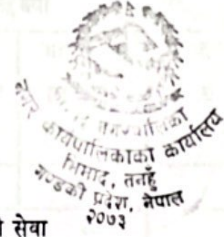 नगरपालिका
नगर कार्यपालिकाको कार्यालय
भिमाद, तनहुँ
गण्डकी प्रदेश, नेपाल
२०७३
सेवा